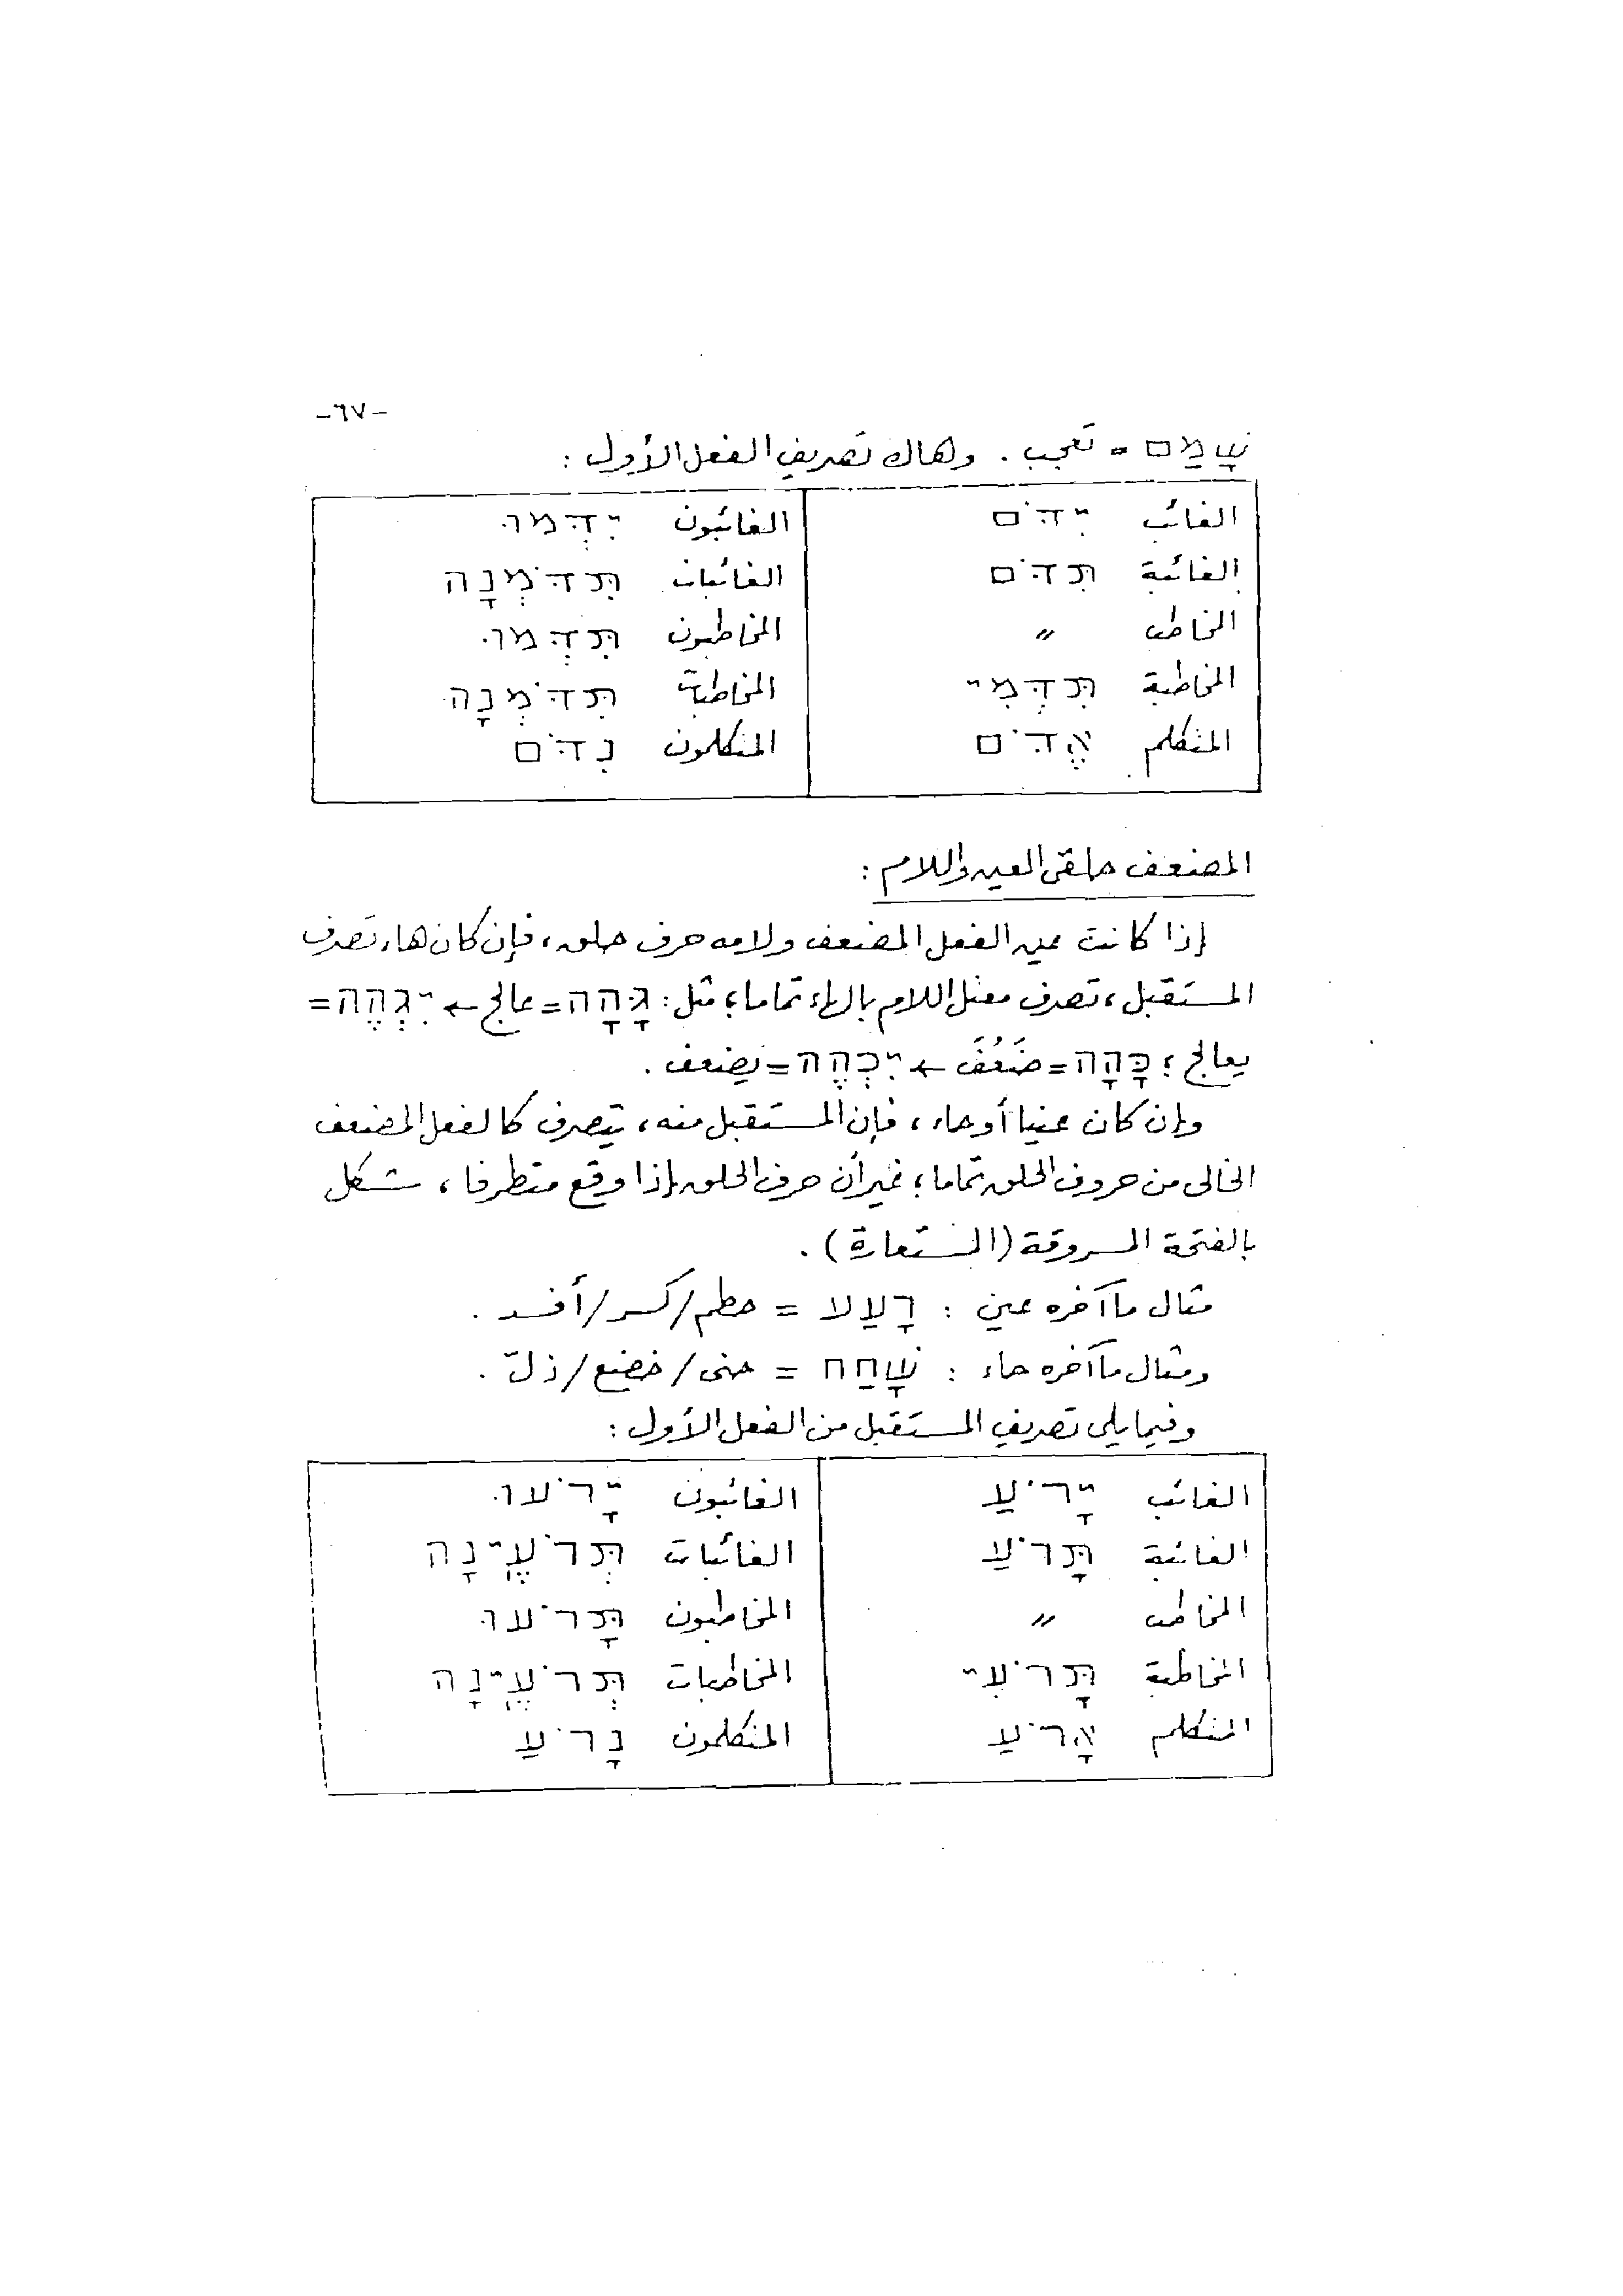 -٦٧-
שָׁמַם = تعجب . وهاك تصريف الفعل الأول :
الغائب יִדֹּם الغائبون יִדְּמוּ
الغائبة תִּדֹּם الغائبات תִּדֹּמְנָה
المخاطب 〃 المخاطبون תִּדְּמוּ
المخاطبة תִּדְּמִי المخاطبات תִּדֹּמְנָה
المتكلم אֶדֹּם المتكلمون נִדֹּם
المضعف حلقى العين واللام :
إذا كانت عين الفعل المضعف ولامه حرف حلق ، فإن كان هاء، تصرف
المستقبل ، تصرف معتل اللام بالهاء تماما ؛ مثل : גָּהָה = عالج ← יִגְהֶה =
يعالج ؛ כָּהָה = ضَعُفَ ← יִכְהֶה = يضعف .
وإن كان عينا أو حاء ، فإن المستقبل منه ، يتصرف كالفعل المضعف
الخالى من حروف الحلق تماما ؛ غير أن حرف الحلق إذا وقع متطرفا ، شكل
بالفتحة المسروقة (المستعارة) .
مثال ما آخره عين : רָעַע = حطم / كسر / أفسد .
ومثال ما آخره حاء : שָׁחַח = حنى / خضع / ذلّ .
وفيما يلى تصريف المستقبل من الفعل الأول :
الغائب יָרֹעַ الغائبون יָרֹעוּ
الغائبة תָּרֹעַ الغائبات תְּרֹעֶינָה
المخاطب 〃 المخاطبون תָּרֹעוּ
المخاطبة תָּרֹעִי المخاطبات תְּרֹעֶינָה
المتكلم אָרֹעַ المتكلمون נָרֹעַ